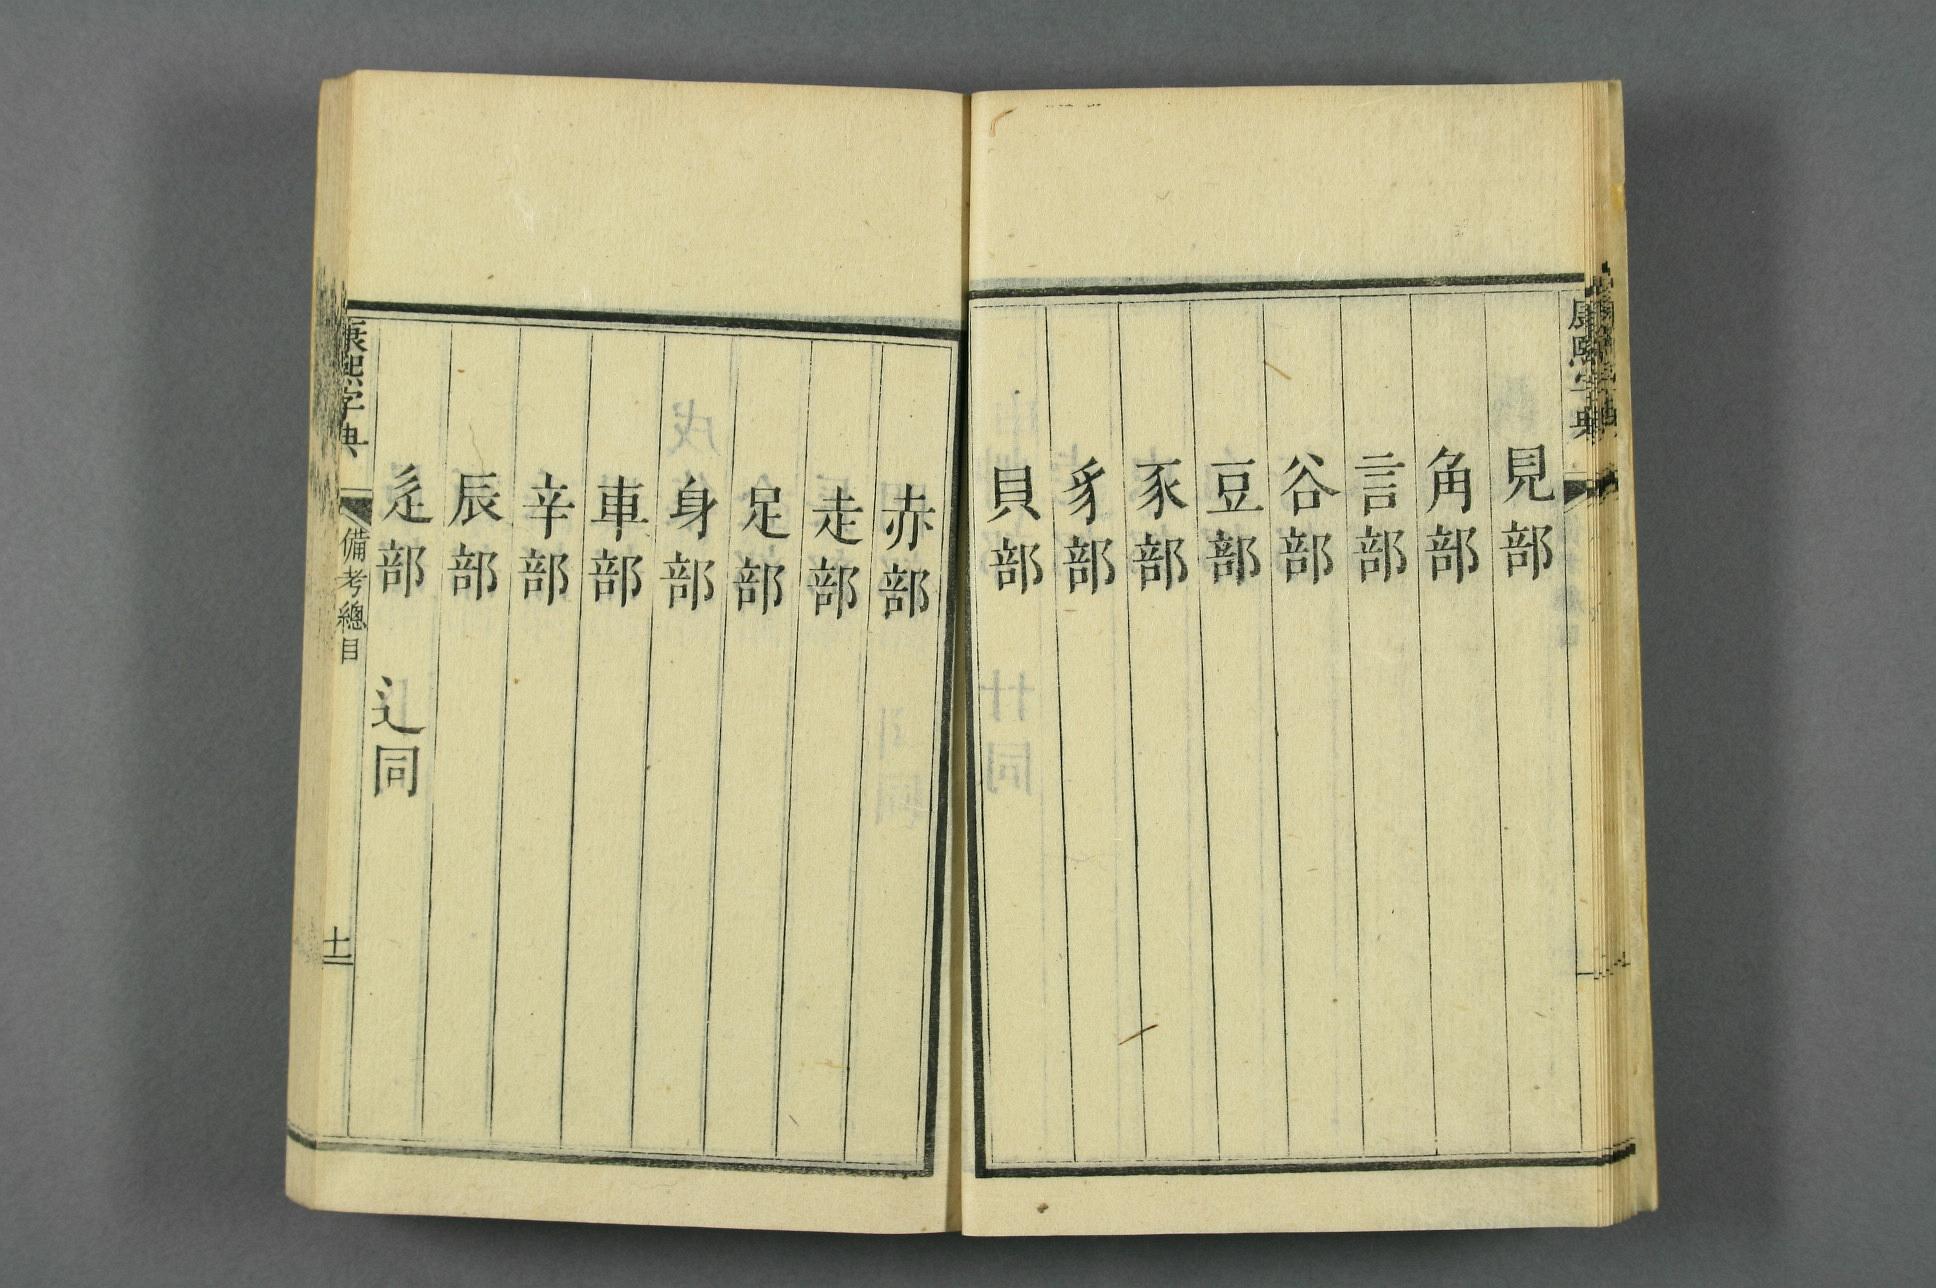 康熙字典
見部
角部
言部
谷部
豆部
豕部
豸部
貝部
赤部
走部
足部
身部
車部
辛部
辰部
辵部 辶同
康熙字典 備考總目 十一